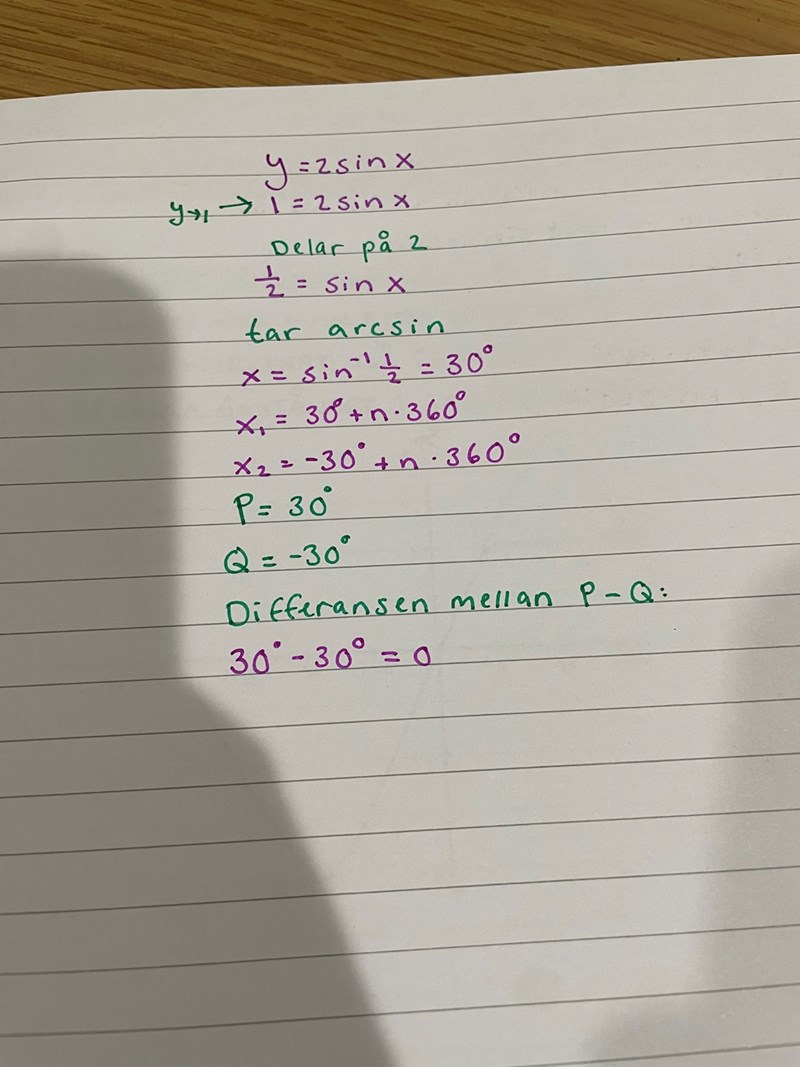 y = 2 sin x
y→1 → 1 = 2 sin x
Delar på 2
1/2 = sin x
tar arcsin
x = sin⁻¹ 1/2 = 30°
x₁ = 30° + n · 360°
x₂ = -30° + n · 360°
P = 30°
Q = -30°
Differansen mellan P - Q:
30° - 30° = 0